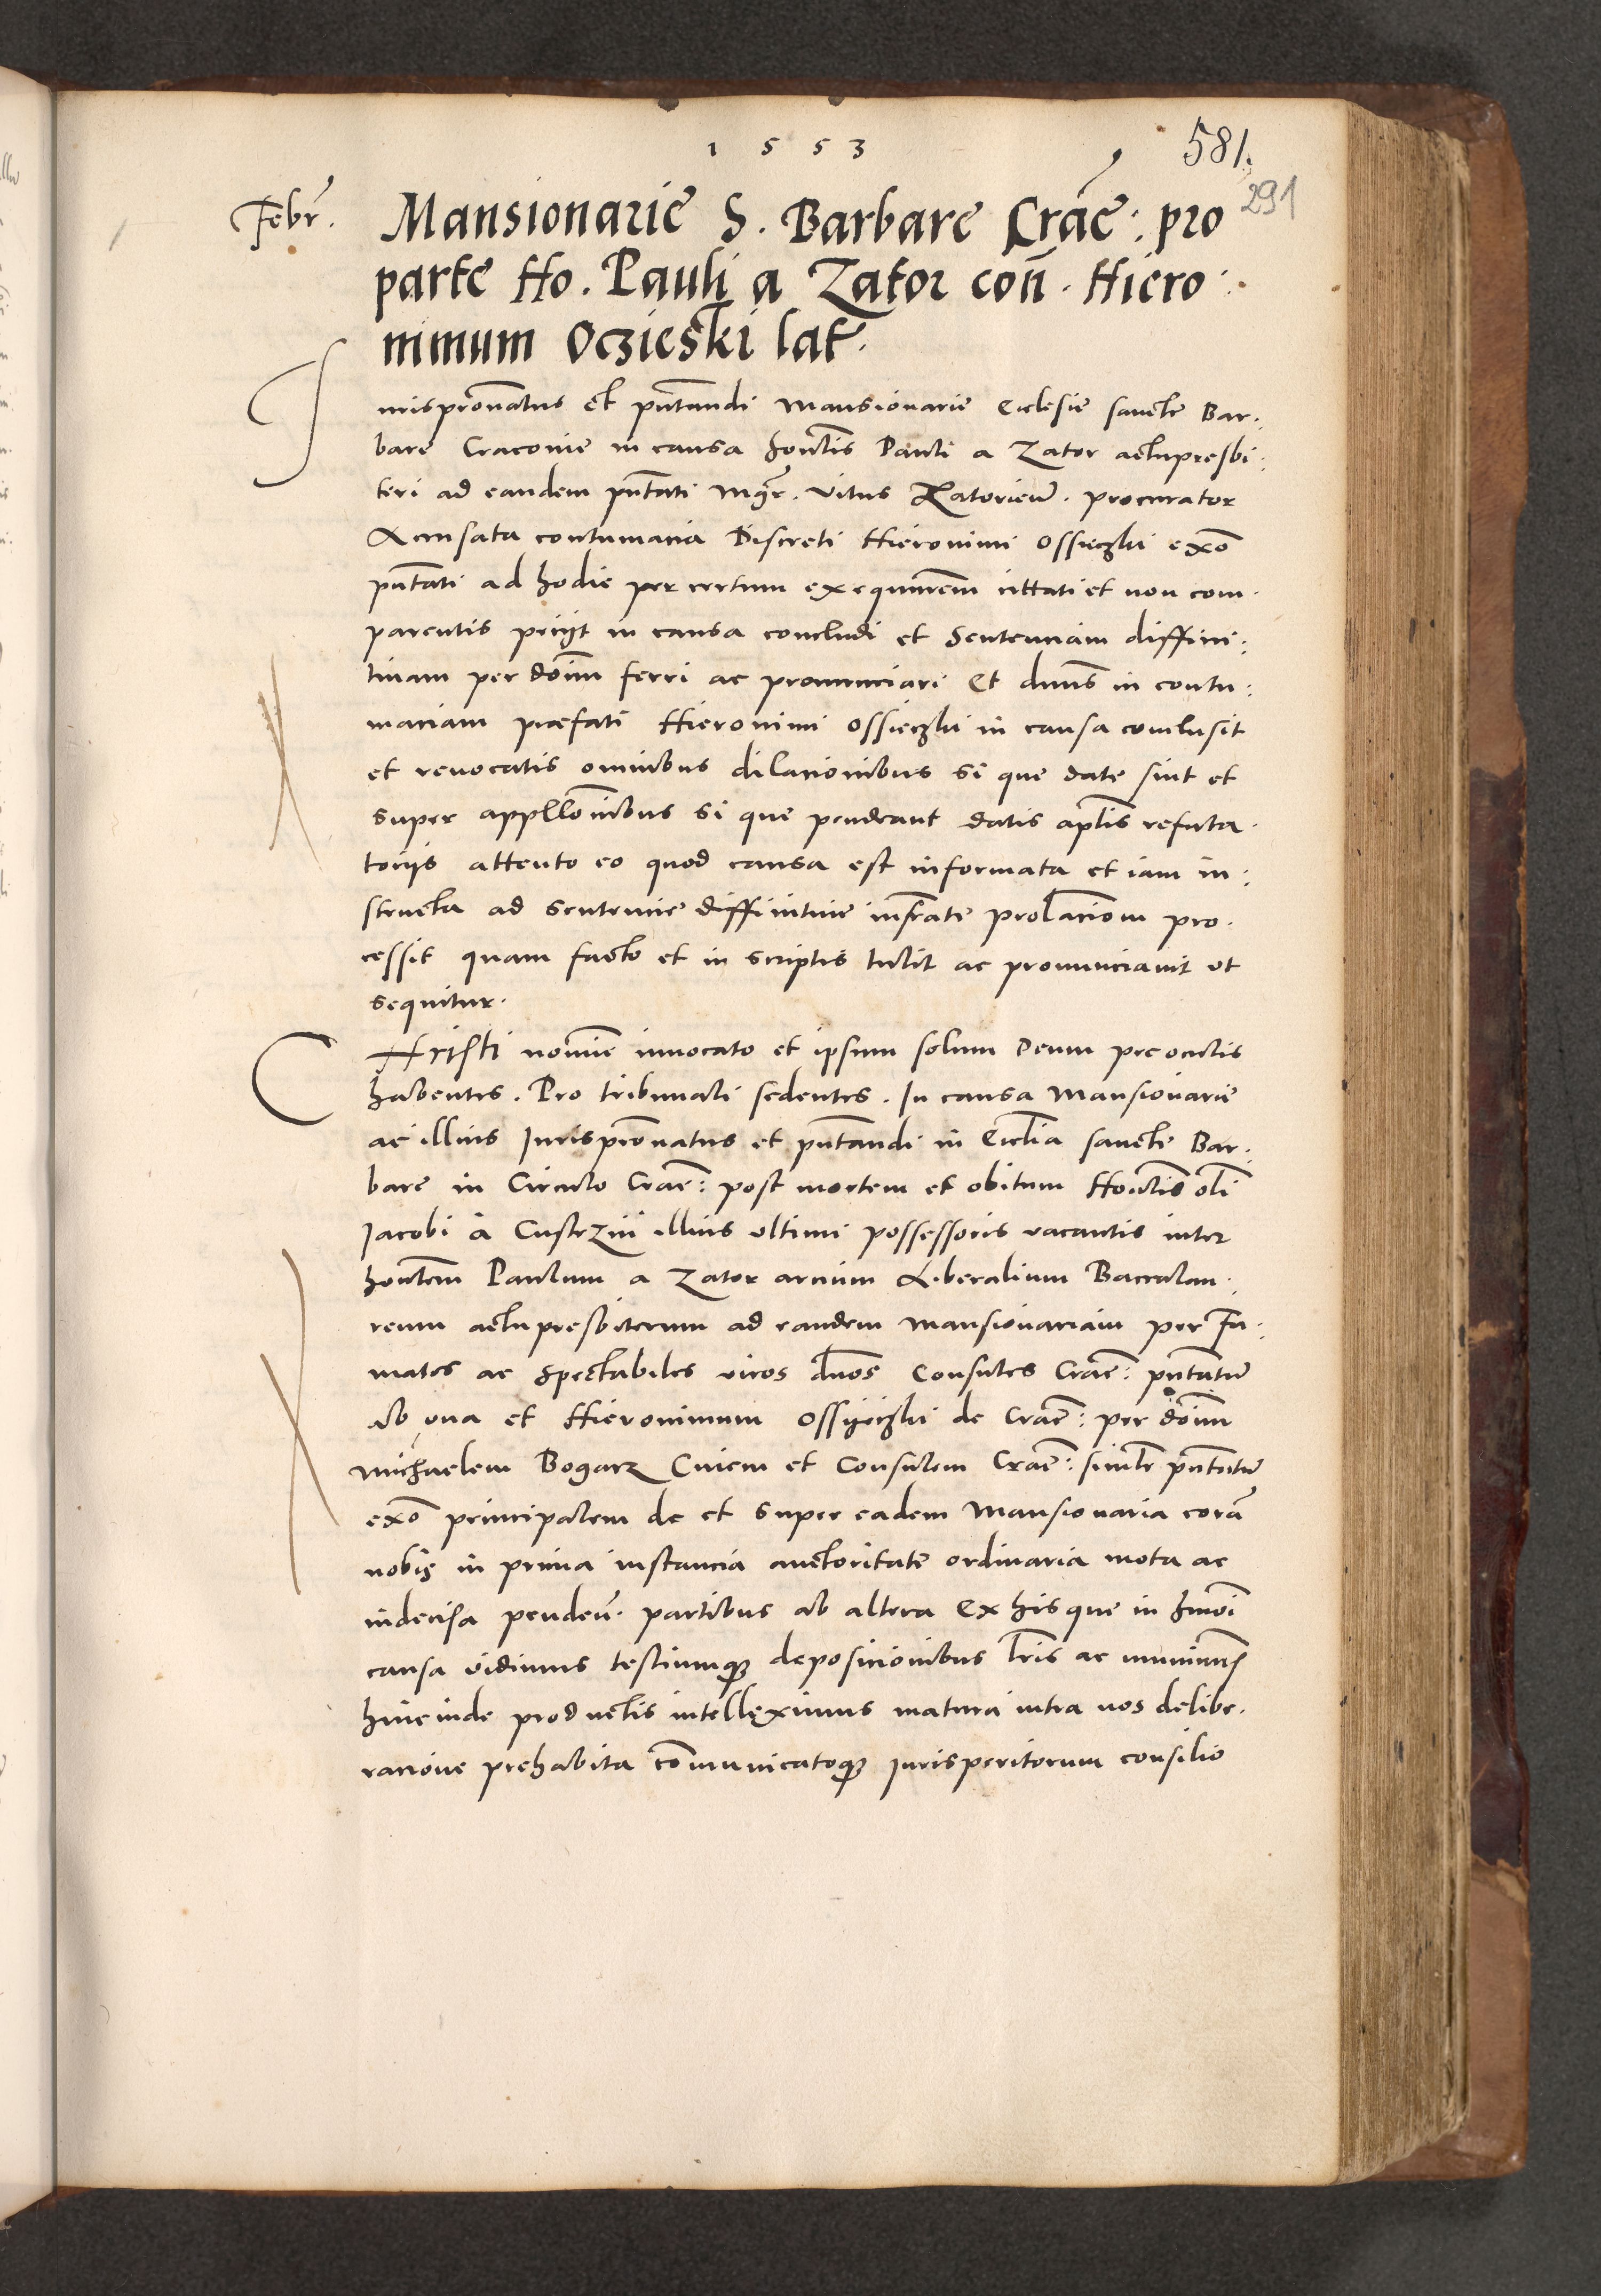 1553
581.
291
Febr.
Mansionarie S. Barbare Crac̄e: pro
parte Ho. Pauli a Zator con̄. Hiero:
nimum Oczieski lat.
Iurispron̄atus et pn̄tandi Mansionarie Ecclesie sancte Bar:
bare Cracovie in causa hon̄lis Pauli a Zator actu presbi:
teri ad eandem pn̄tati Mgr̄. Vitus Ratorien̄. procurator
Accusata contumacia Discreti Hieronimi Ossieczki ex̄o
pn̄tati ad hodie per certum exequutorem cittati et non com
parentis petijt in causa concludi et Sentenciam diffini:
tivam per dn̄um ferri ac pronunciari Et dn̄us in contu:
maciam prefati Hieronimi Ossieczki in causa conclusit
et revocatis omnibus dilacionibus si que date sint et
super appllōnibus si que pendeant datis aplīs refuta
torijs attento eo quod causa est informata et iam in:
structa ad sentencie diffinitive infrate prolacionem pro
cessit quam facto et in scriptis tulit ac pronunciavit ut
sequitur.
CHristi nomine invocato et ipsum solum Deum pre oculis
habentes. Pro tribunali sedentes. In causa Mansionarie
ac illius Iurispron̄atus et pn̄tandi in Ecclīa sancte Bar:
bare in Circulo Crac̄e: post mortem et obitum Hon̄lis olī
Iacobi a Custrzin illius ultimi possessoris vacantis inter
hon̄lem Paulum a Zator arcium Liberalium Baccalau
reum actu presbiterum ad eandem mansionariam per Fa
matos ac spectabiles viros dn̄os Consules Crac̄e: pn̄tatum
ab una et Hieronimum Ossyeczki de Crac̄e: per dn̄um
Michaelem Bogarz Civem et Consulem Crac̄e: similr̄ pn̄tatum
ex̄o principalem de et super eadem Mansionaria corā
nobis in prima instancia auctoritate ordinaria mota ac
indecisa penden̄. partibus ab altera Ex his que in hmōi
causa vidimus testiumqꝫ deposicionibus lr̄is ac munimen̄
hinc inde productis intelleximus matura intra nos delibe
racione prehabita cōmunicatoqꝫ Iurisperitorum consilio